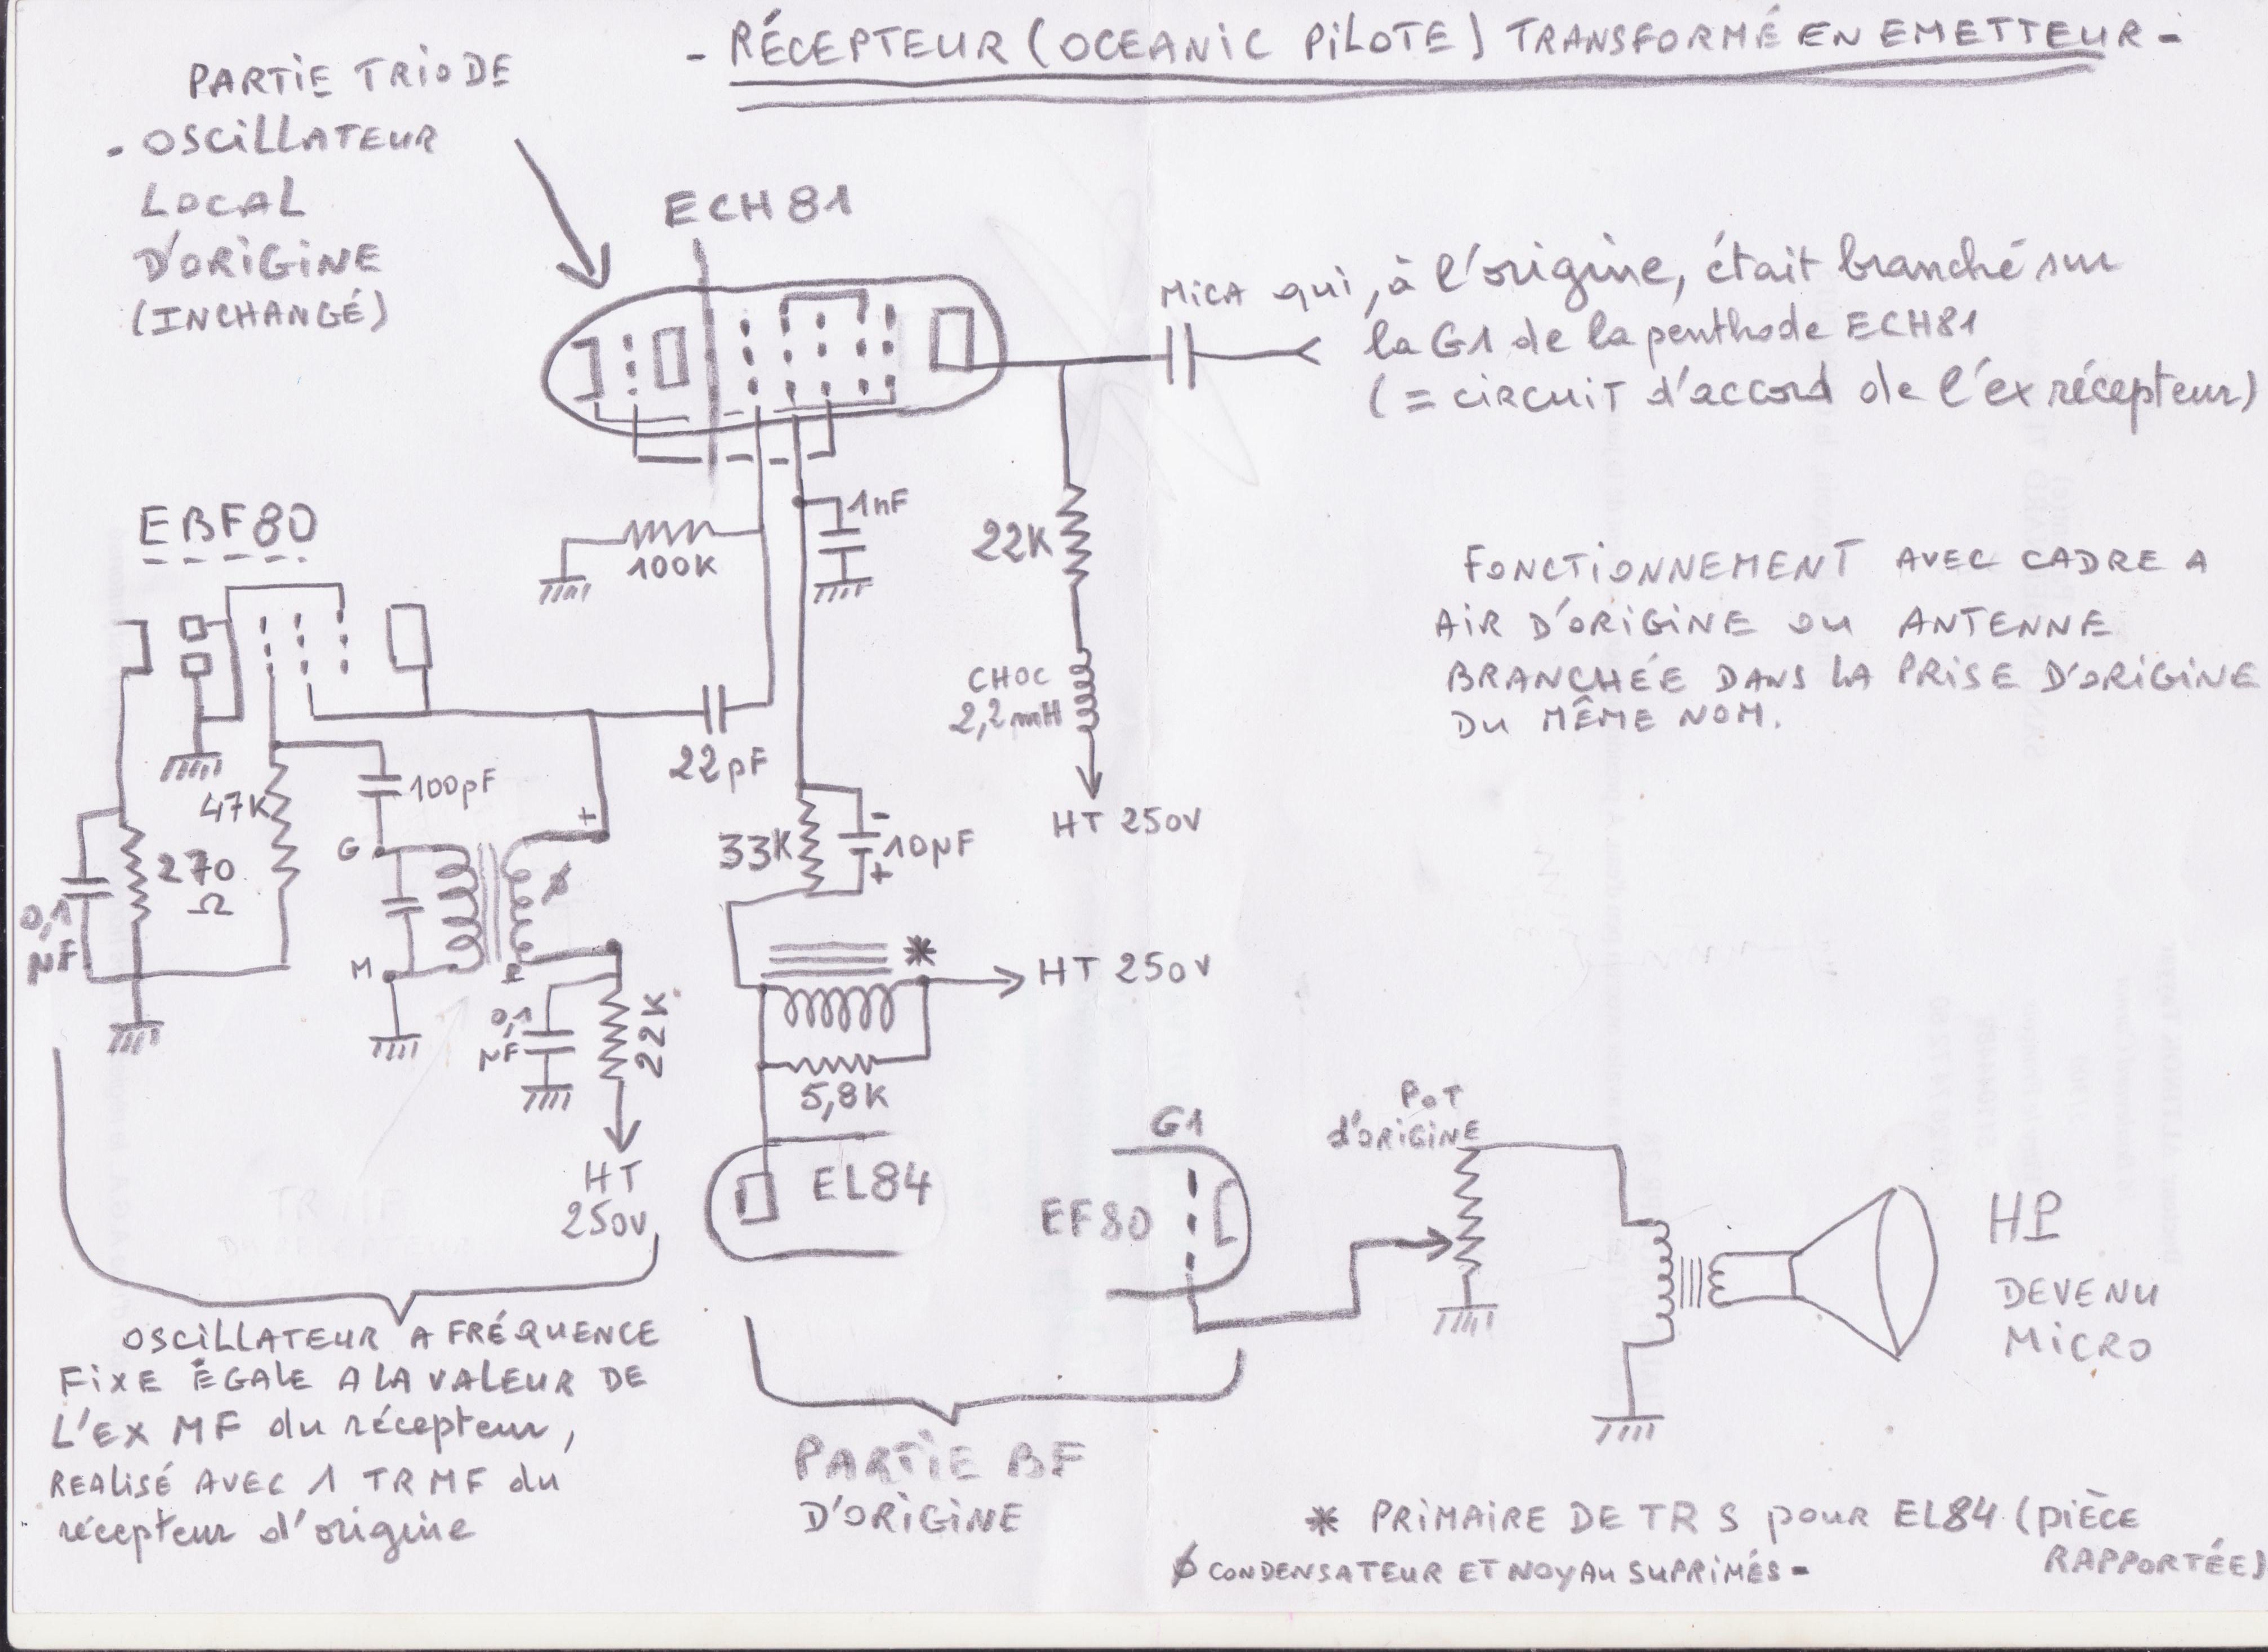 - RÉCEPTEUR (OCEANIC PILOTE) TRANSFORMÉ EN EMETTEUR -
PARTIE TRIODE
- OSCILLATEUR
LOCAL
D'ORIGINE
(INCHANGÉ)
ECH81
MICA qui, à l'origine, était branché sur
la G1 de la penthode ECH81
(= CIRCUIT d'accord de l'ex récepteur)
EBF80
100K
1nF
22K
CHOC
2,2mH
HT 250V
FONCTIONNEMENT AVEC CADRE A
AIR D'ORIGINE OU ANTENNE
BRANCHÉE DANS LA PRISE D'ORIGINE
DU MÊME NOM.
22pF
47K
100pF
270
Ω
0,1
µF
G
M
+
ø
P
0,1
µF
22K
HT
250V
33K
-
10µF
+
*
HT 250V
5,8K
EL84
EF80
G1
POT
d'ORIGINE
HP
DEVENU
MICRO
TR MF
OSCILLATEUR A FRÉQUENCE
FIXE ÉGALE A LA VALEUR DE
L'EX MF du récepteur,
REALISÉ AVEC 1 TR MF du
récepteur d'origine
PARTIE BF
D'ORIGINE
* PRIMAIRE DE TR S pour EL84 (PIÈCE
RAPPORTÉE)
ø CONDENSATEUR ET NOYAU SUPRIMÉS -